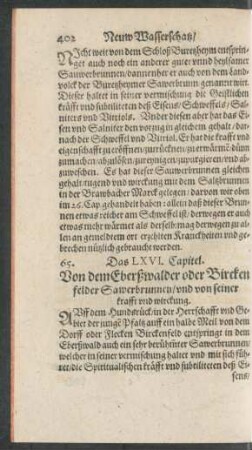 402 Neuw Wasserschatz/
Nicht weit von dem Schloß Buretzheym entsprin-
get auch noch ein anderer guter vnnd heylsamer
Sauwerbrunnen/ dannenher er auch von dem Landt-
volck der Buretzheymer Sawerbrunn genannt wirt.
Dieser haltet in seiner vermischung die Geistlichen
kräfft vnd subtiliteten deß Eisens/ Schweffels/ Sal-
niters vnd Vitriols. Vnder diesen aber hat das Ei-
sen vnd Salniter den vorzug in gleichem gehalt/ dar-
nach der Schweffel vnd Vitriol. Er hat die krafft vnd
eigenschafft zu eröffnen/ zu trücknen/ zu erwärmẽ/ dünn
zumachen/ abzulösen/ zureynigen/ zupurgieren/ vnd ab-
zuweschen. Es hat dieser Sauwerbrunnen gleichen
gehalt/ tugend vnd wirckung mit dem Saltzbrunnen
in der Brawbacher Marck gelegen/ darvon wir oben
im 26. Cap. gehandelt haben: allein daß dieser Brun-
nen etwas reicher am Schweffel ist/ derwegen er auch
etwas mehr wärmet als derselb: mag derwegen zu al-
len an gemeldtem ort erzehlten Kranckheiten vnd ge-
brechen nützlich gebraucht werden.
65. Das LXVI. Capitel.
Von dem Eberßwalder oder Bircken
felder Sawerbrunnen/ vnd von seiner
krafft vnd wirckung.
Auff dem Hundsrück/ in der Herrschafft vnd Ge-
biet der jungẽ Pfaltz auff ein halbe Meil von dem
Dorff oder Flecken Birckenfeld entspringt in dem
Eberßwald auch ein sehr berühmter Sawerbrunnen/
welcher in seiner vermischung haltet vnd mit sich füh-
ret/ die Spiritualischen kräfft vnd subtiliteten deß Ei-
sens/